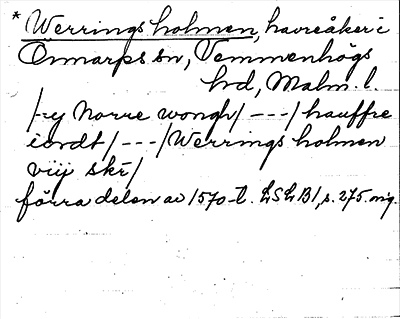 * Werrings holmen, havreåker i
Önnarps sn, Vemmenhögs
hrd, Malm. l.
/-y Norre wongh/ ---/ hauffre
iordt/ ---/ Werrings holmen
viij skr/
förra delen av 1570-t. LSLB1, s. 275. mg.